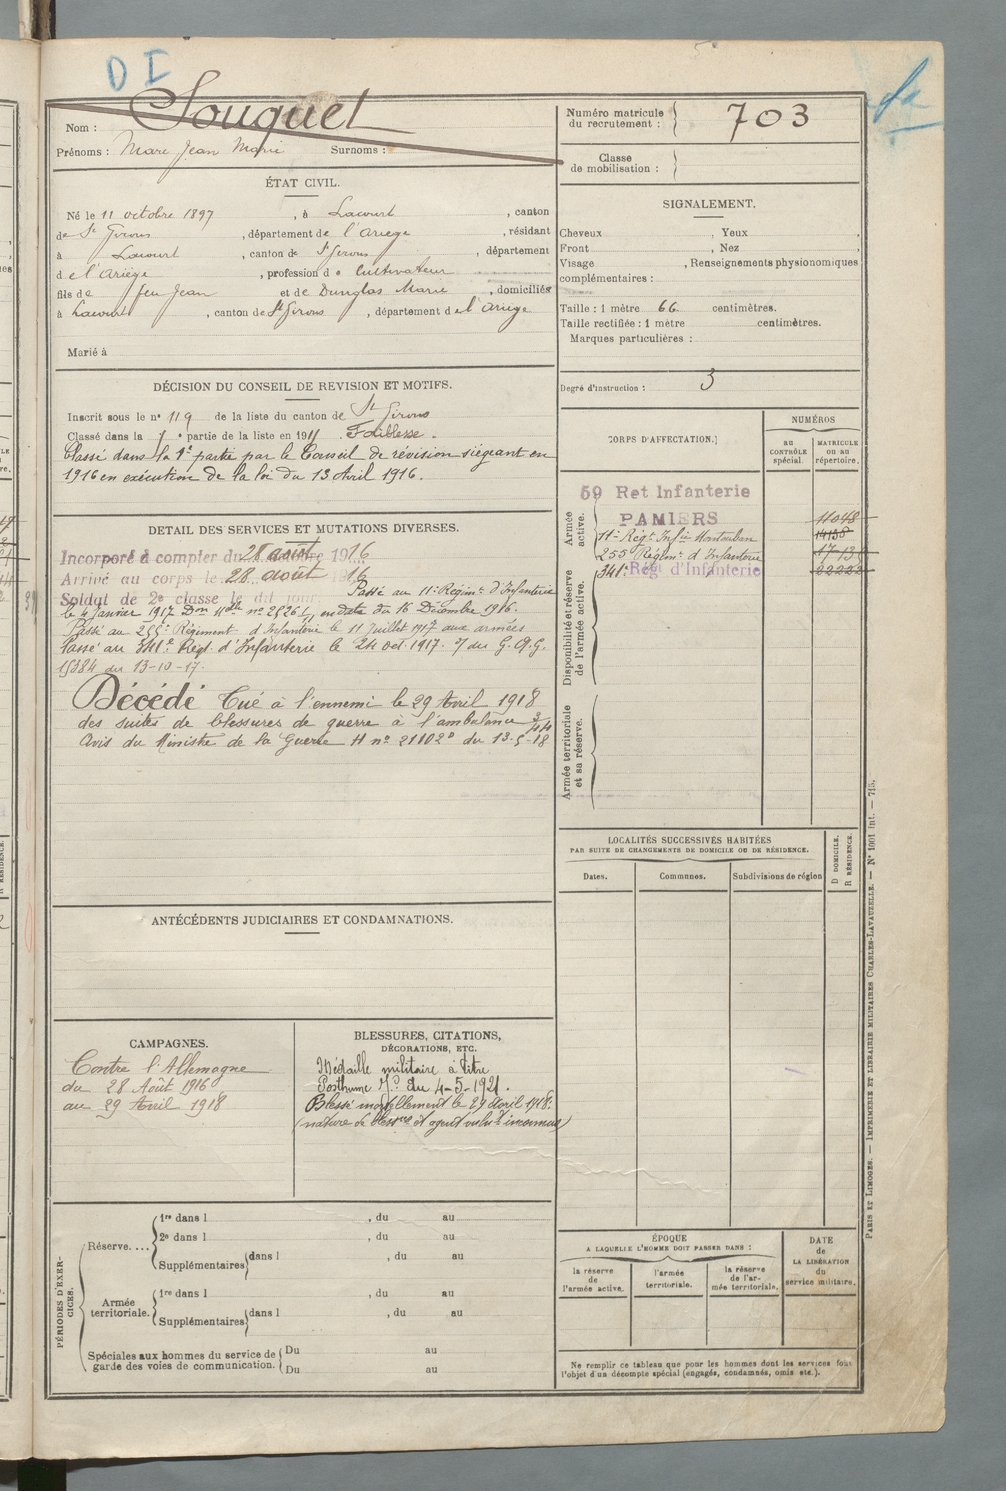 D I
Nom : Souquet
Prénoms : Marc Jean Marie Surnoms :
Numéro matricule du recrutement : 703
Classe de mobilisation :
ÉTAT CIVIL.
Né le 11 octobre 1897, à Lacourt, canton
de St Girons, département de l'Ariège, résidant
à Lacourt, canton de St Girons, département
de l'Ariège, profession de Cultivateur
fils de feu Jean et de Dunglas Marie, domiciliés
à Lacourt, canton de St Girons, département de l'Ariège
Marié à
SIGNALEMENT.
Cheveux , Yeux ,
Front , Nez ,
Visage , Renseignements physionomiques
complémentaires :
Taille : 1 mètre 66 centimètres.
Taille rectifiée : 1 mètre centimètres.
Marques particulières :
Degré d'instruction : 3
DÉCISION DU CONSEIL DE REVISION ET MOTIFS.
Inscrit sous le n° 119 de la liste du canton de St Girons
Classé dans la partie de la liste en 191 Faiblesse.
Classé dans la 1e partie par le Conseil de révision siégeant en
1916 en exécution de la loi du 13 Avril 1916.
DETAIL DES SERVICES ET MUTATIONS DIVERSES.
Incorporé à compter du 28 août 1916
Arrivé au corps le 28 août 1916
Soldat de 2e classe le dit jour. Passé au 11e Régimt d'Infanterie
le 4 Janvier 1917 Don Mlle no en date du 16 Décembre 1916.
Passé au 255e Régiment d'Infanterie le 11 Juillet 1917 aux armées
Passé au 341e Régt d'Infanterie le 24 oct. 1917. du G.Q.G.
15384 du 13-10-17.
Décédé Tué à l'ennemi le 29 Avril 1918
des suites de blessures de guerre à l'ambulance 3/44
Avis du Ministre de la Guerre H no 21102 du 13-5-18
CORPS D'AFFECTATION.
NUMÉROS
au CONTRÔLE spécial.
MATRICULE ou au répertoire.
Armée active.
59 Ret Infanterie
PAMIERS 11048
11e Régt Infie Montauban 14138
255 Régimt d'Infanterie 1713
341e Régt d'Infanterie 22222
Disponibilité et réserve de l'armée active.
Armée territoriale et sa réserve.
LOCALITÉS SUCCESSIVES HABITÉES
PAR SUITE DE CHANGEMENTS DE DOMICILE OU DE RÉSIDENCE.
Dates. Communes. Subdivisions de région
D DOMICILE.
R RÉSIDENCE.
ANTÉCÉDENTS JUDICIAIRES ET CONDAMNATIONS.
CAMPAGNES.
Contre l'Allemagne
du 28 Août 1916
au 29 Avril 1918
BLESSURES, CITATIONS,
DÉCORATIONS, ETC.
Médaille militaire à titre
Posthume J.O. du 4-5-1921.
Blessé mortellement le 29 Avril 1918.
(nature de blessure et agent vulnt inconnus)
PÉRIODES D'EXERCICES.
Réserve....
1re dans l , du au
2e dans l , du au
Supplémentaires dans l , du au
Armée territoriale.
1re dans l , du au
Supplémentaires dans l , du au
Spéciales aux hommes du service de garde des voies de communication.
Du au
Du au
ÉPOQUE
A LAQUELLE L'HOMME DOIT PASSER DANS :
la réserve de l'armée active.
l'armée territoriale.
la réserve de l'armée territoriale.
DATE de LA LIBÉRATION du service militaire.
Ne remplir ce tableau que pour les hommes dont les services font
l'objet d'un décompte spécial (engagés, condamnés, omis etc.).
PARIS ET LIMOGES. — IMPRIMERIE ET LIBRAIRIE MILITAIRES CHARLES-LAVAUZELLE. — N° 1001 Int. — 715.